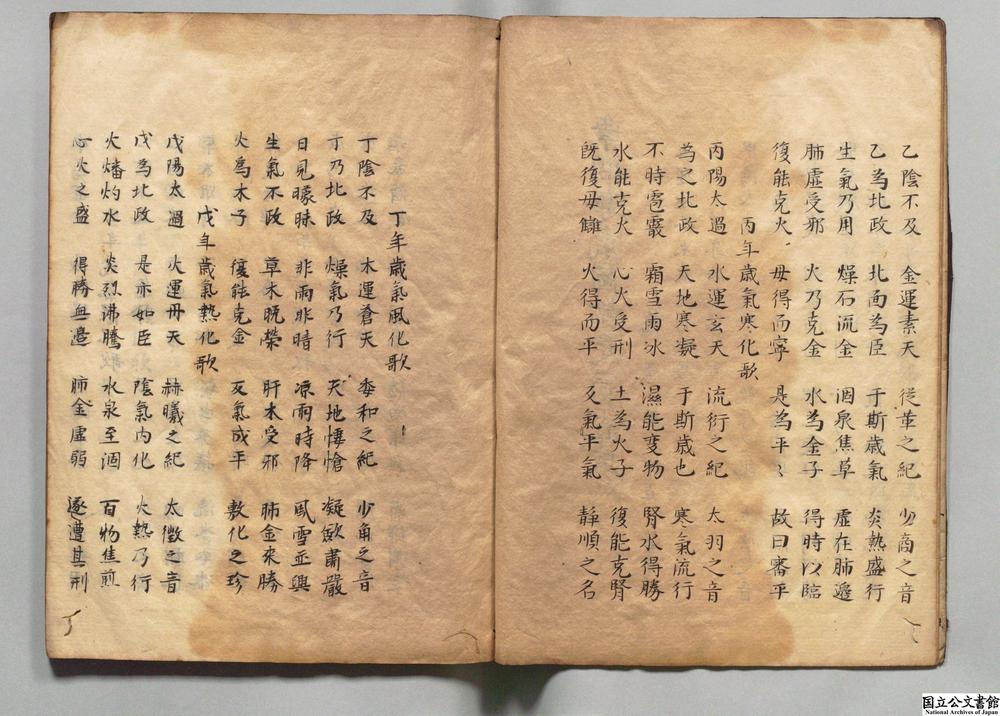 乙陰不及 金運素天 從革之紀 少商之音
乙為北政 北面為臣 于斯歲氣 炎熱盛行
生氣乃用 燥石流金 涸泉焦草 虛在肺邊
肺虛受邪 火乃克金 水為金子 得時以臨
復能克火 母得而寧 是為平〻 故曰審平
丙年歲氣寒化歌
丙陽太過 水運玄天 流衍之紀 太羽之音
為之北政 天地寒凝 于斯歲也 寒氣流行
不時雹霰 霜雪雨冰 濕能变物 腎水得勝
水能克火 心火受刑 土為火子 復能克腎
既復母讎 火得而平 反氣平氣 靜順之名
丁年歲氣風化歌
丁陰不及 木運蒼天 委和之紀 少角之音
丁乃北政 燥氣乃行 天地悽愴 凝歛肅嚴
日見曚昧 非雨非晴 凉雨時降 風雪並興
生氣不政 草木晩榮 肝木受邪 肺金來勝
火爲木子 復能克金 反氣成平 敷化之珍
戊年歲氣熱化歌
戊陽太過 火運丹天 赫曦之紀 太徵之音
戊為北政 是亦如臣 陰氣内化 火熱乃行
火燔灼水 炎烈沸騰 水泉至涸 百物焦煎
心火之盛 得勝無邊 肺金虛弱 逐遭其刑
国立公文書館
National Archives of Japan